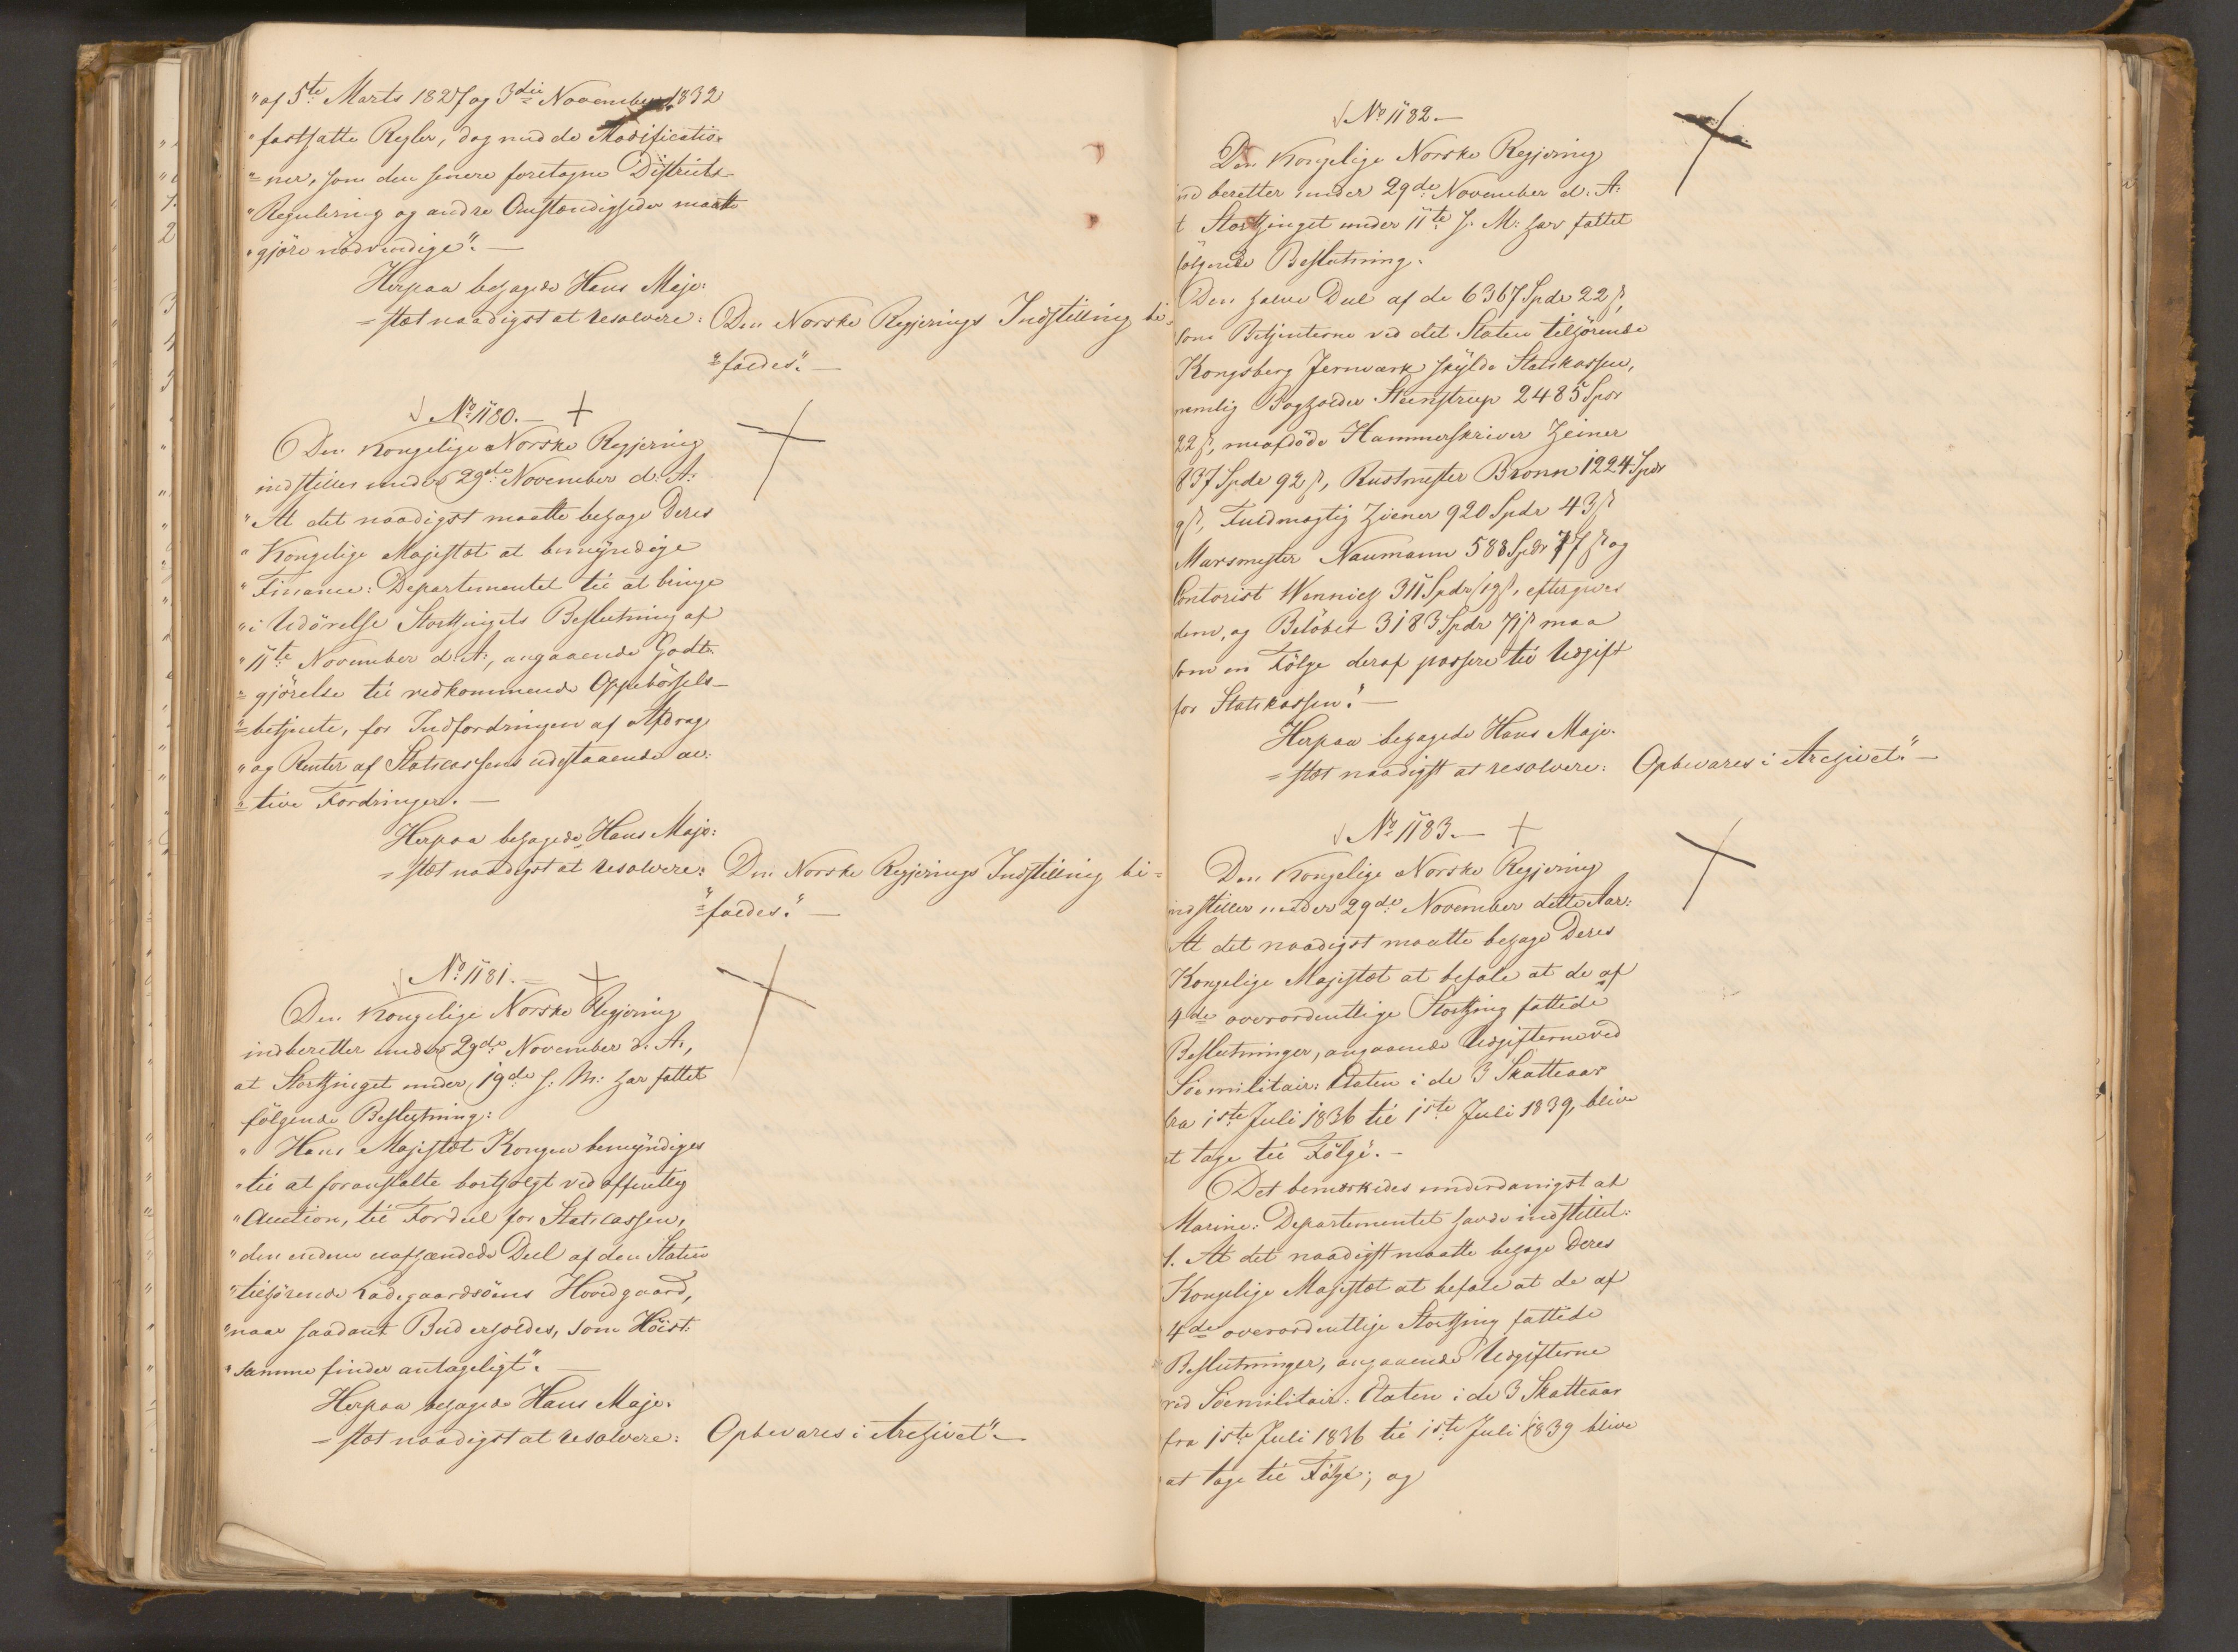 "af 5te Marts 1827 og 3die November 1832
"fastsatte Regler, dog med de Modificatio-
"=ner, som den senere foretagne Districts-
"Regulering og andre Omstændigheder maatte
"gjöre nödvendige".—
Herpaa behagede Hans Maje:
=stæt naadigst at resolvere: Den Norske Regjerings Indstilling bi=
"=faldes".—
No 1180.— +
Den Kongelige Norske Regjering
indstiller under 29de November d: A:
"At det naadigst maatte behage Deres
"Kongelige Majestæt at bemyndige
"Finance: Departementet til at bringe
"i Udövelse Storthingets Beslutning af
"11te November d: A:, angaaende Godt-
"=gjörelse til vedkommende Oppebörsels-
"=betjente, for Indfordringen af Afdrag
"og Renter af Statscassens udestaaende ac:
"=tive Fordringer.—
Herpaa behagede Hans Maje:
=stæt naadigst at resolvere: Den Norske Regjerings Indstilling bi=
"=faldes".—
No 1181.— +
Den Kongelige Norske Regjering
indberetter under 29de November d. A.,
at Storthinget under 19de s: M: har fattet
fölgende Beslutning:
"Hans Majestæt Kongen bemyndiges
"til at foranstalte bortsolgt ved offentlig
"Auction, til Fordeel for Statscassen,
"den endnu uafhændede Deel af den Staten
"tilhörende Ladegaardsöens Hovedgaard,
"naar saadant Bud erholdes, som Höist-
"samme finder antageligt".—
Herpaa behagede Hans Maje-
=stæt naadigst at resolvere: Opbevares i Archivet".—
No 1182.—
Den Kongelige Norske Regjering
ind beretter under 29de November d: A:
t Storthinget under 11te s: M: har fattet
fölgende Beslutning:
Den halve Deel af de 6367 Spdr 22 ß,
som Betjenterne ved det Staten tilhörende
Kongsberg Jernværk skylde Statskassen,
nemlig Bogholder Steenstrup 2485 Spdr
22 ß, nuafdöde Hammerskriver Zeiner
837 Spdr 92 ß, Rustmester Bronn 1224 Spdr
9 ß, Fuldmægtig Ziener 920 Spdr 43 ß
Marsmester Naumann 588 Spdr 77 ß og
Contorist Wennich 311 Spdr 19 ß, eftergives
dem, og Belöbet 3183 Spdr 71 ß maa
som en Fölge deraf passere til Udgift
for Statskassen".—
Herpaa behagede Hans Maje-
=stæt naadigst at resolvere: Opbevares i Archivet".—
No 1183.— +
Den Kongelige Norske Regjering
indstiller under 29de November dette Aar:
At det naadigst maatte behage Deres
Kongelige Majestæt at befale at de af
4de overordentlige Storthing fattede
Beslutninger, angaaende Udgifterne ved
Söemilitair: Etaten i de 3 Skatteaar
fra 1ste Juli 1836 til 1ste Juli 1839, blive
at tage til Fölge.—
Det bemærkedes underdanigst at
Marine: Departementet havde indstillet:
1. At det naadigst maatte behage Deres
Kongelige Majestæt at befale at de af
4de overordentlige Storthing fattede
Beslutninger, angaaende Udgifterne
ved Söemilitair: Etaten i de 3 Skatteaar
fra 1ste Juli 1836 til 1ste Juli 1839 blive
at tage til Fölge; og